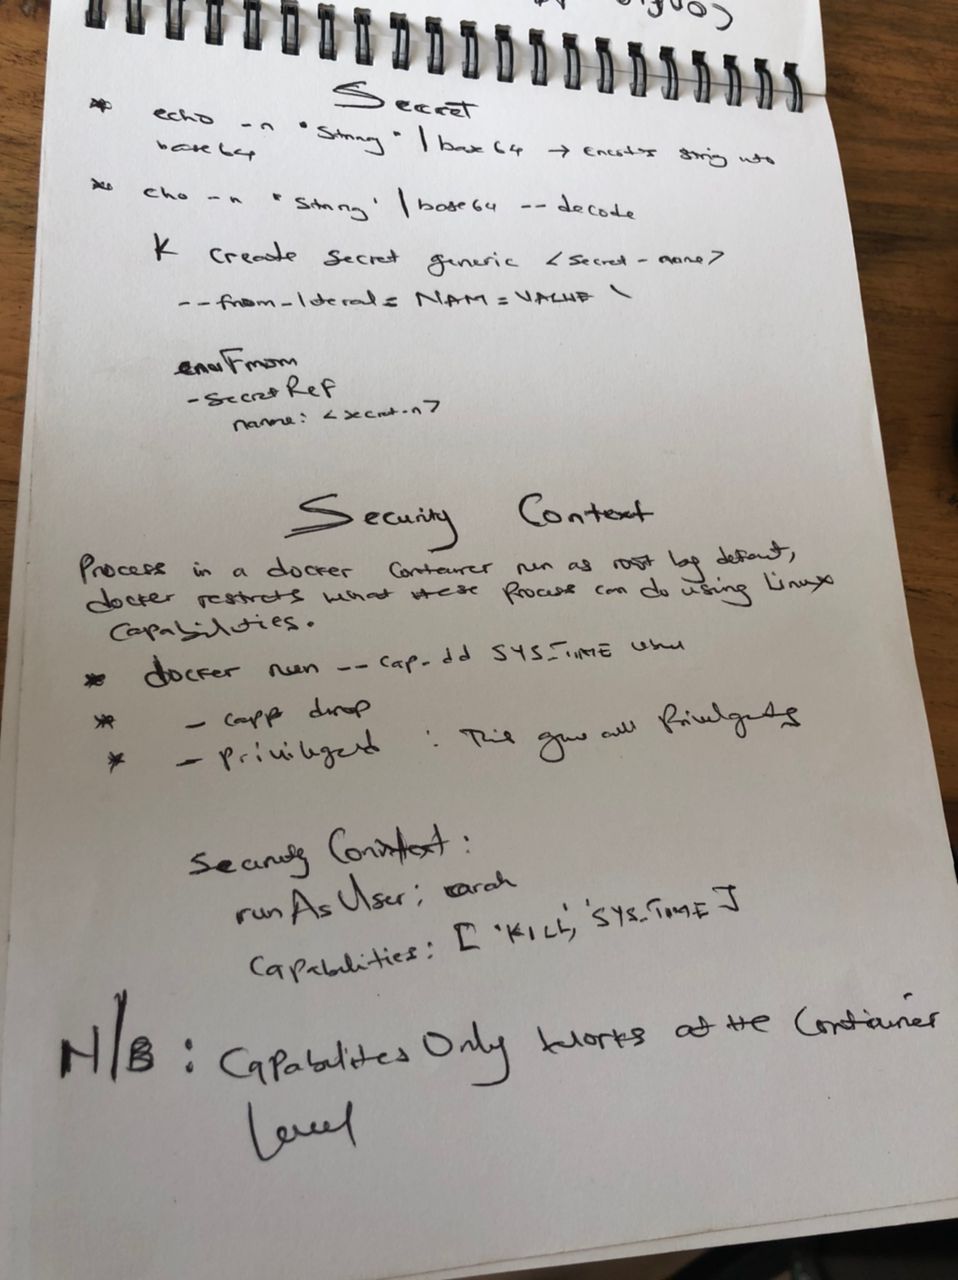 Config
Secret
* echo -n "String" | base64 → encodes string into
base64
* cho -n "String' | base64 --decode
K create secret generic <secret-name>
--from-literal= NAM = VALUE \
envFrom
-secretRef
name: <secret-n>
Security Context
Process in a docker Container run as root by default,
docker restricts what these Process can do using Linux
Capabilities.
* docker run -- cap-dd SYS_TIME
* - capp drop
* - privileged : This gave all Privilgeds
Security Context:
runAsUser: sarah
Capabilities: ['KILL', 'SYS_TIME]
N/B: Capabilites Only Works at the Container
Level